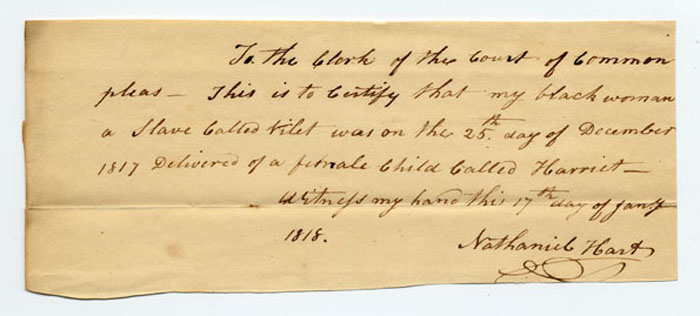 To the Clerk of the Court of Common
pleas — This is to Certify that my black woman
a Slave Called Vilet was on the 25th day of December
1817 Delivered of a female Child Called Harriet —
Witness my hand this 17th day of Jany
1818.
Nathaniel Hart